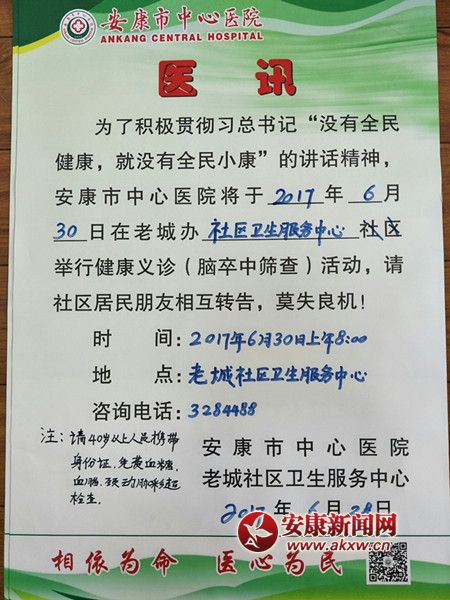 安康市中心医院
ANKANG CENTRAL HOSPITAL
医 讯
为了积极贯彻习总书记“没有全民
健康，就没有全民小康”的讲话精神，
安康市中心医院将于 2017 年 6 月
30 日在老城办 社区卫生服务中心 社区
举行健康义诊（脑卒中筛查）活动，请
社区居民朋友相互转告，莫失良机！
时 间：2017年6月30日上午8:00
地 点：老城社区卫生服务中心
咨询电话：3284488
注：请40岁以上人民携带
身份证，免费血糖，
血脂、颈动脉彩超
检查。
安康市中心医院
老城社区卫生服务中心
2017 年 6 月 28 日
安康新闻网
www.akxw.cn
相依为命 医心为民